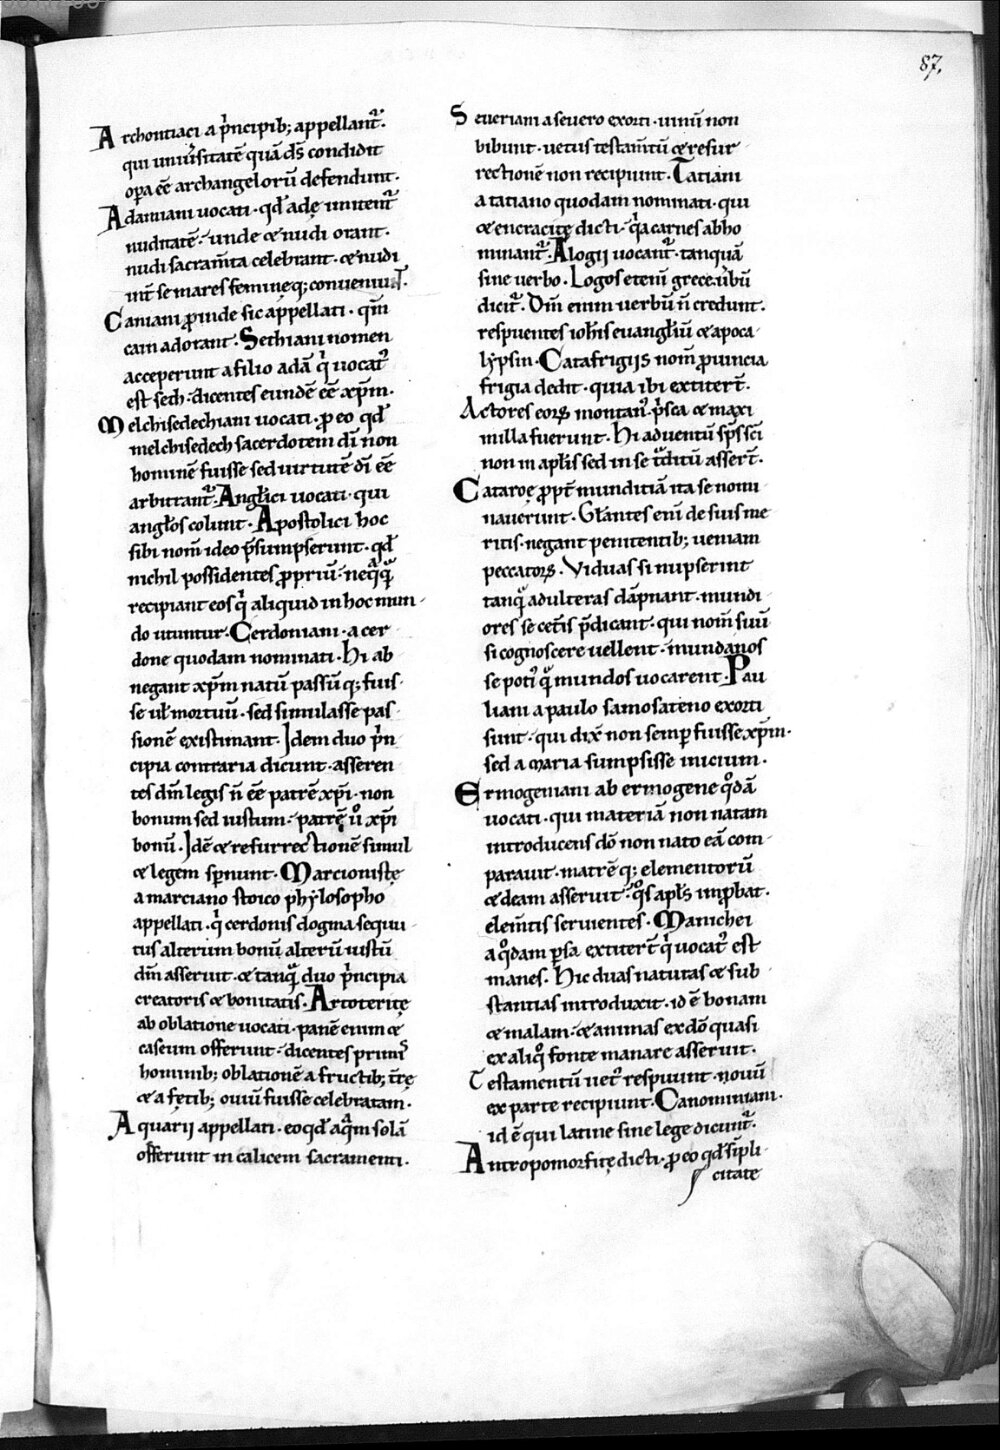 87.
Archontiaci a p̍ncipib; appellant᷑.
qui uniu͛sitatē quā ds̄ condidit
op̲a eē archangelorū defendunt.
Adamiani uocati · qd̄ adę imitent᷑
nuditatē · unde & nudi orant.
nudi sacram̄ta celebrant · & nudi
int̄ se mares femineq; conueniūt.
Caniani ꝓinde sic appellati · qm̄
cain adorant. Sethiani nomen
acceperunt a filio adā q̍ uocat᷑
est seth · dicentes eundē eē xp̄m.
Melchisedechiani uocati · ꝓ eo qd̄
melchisedech sacerdotem dī non
hominē fuisse sed uirtutē dī eē
arbitrant᷑. Angłici uocati · qui
angłos colunt · Apostolici hoc
sibi nom̄ ideo p̄sumpserunt · qd̄
nichil possidentes ꝓpriū · neq̄q̄
recipiant eos q̍ aliquid in hoc mun-
do utuntur. Cerdoniani · a cer-
done quodam nominati · Hi ab-
negant xp̄m natū passūq; fuis-
se uł mortuū · sed simulasse pas-
sionē existimant. Idem duo p̍n-
cipia contraria dicunt · asseren-
tes dm̄ legis n̄ eē patrē xp̄i · non
bonum sed iustum · patrē u̾o xp̄i
bonū. Idē & resurrectionē simul
& legem sp̲nunt. Marcionistę
a marciano stoico phylosopho
appellati · q̍ cerdonis dogma sequu-
tus alterum bonū alterū iustū
dm̄ asseruit · & tanq̄ duo p̍ncipia
creatoris & bonitatis. Artoteritę
ab oblatione uocati · panē enim &
caseum offerunt · dicentes primis
hominib; oblationē a fructib; t̄rę
& a fętib; ouiū fuisse celebratam.
Aquarii appellati · eo qd̄ aq̄m solā
offerunt in calicem sacramenti.
Seueriani a seuero exorti · uinū non
bibunt · uetus testam̄tū & resur-
rectionē non recipiunt. Tatiani
a tatiano quodam nominati · qui
& encracitę dicti · q̍a carnes abho-
minant᷑. Alogii uocant᷑ · tanquā
sine uerbo. Logos etenī grece u̾bū
dicit᷑. Dm̄ enim uerbū n̄ credunt.
respuentes ioh̄is euangłiū & apoca-
lypsin. Catafrigiis nom̄ ꝓuincia
frigia dedit · quia ibi extiter̄t.
Actores eorꝝ montan᷒ p̍sca & maxi-
milla fuerunt. Hi aduentū sp̄s sc̄i
non in apłis sed in se t̄ditū asser̄t.
Cataroę ꝓpt̄ munditiā ita se nomi-
nauerunt. Głantes enī de suis me-
ritis · negant penitentib; ueniam
peccatorꝝ. Viduas si nupserint
tanq̄ adulteras dāpnant · mundi-
ores se cet̄is p̄dicant · qui nom̄ suū
si cognoscere uellent · mundanos
se poti᷒ q̄ mundos uocarent. Pau-
liani a paulo samosateno exorti
sunt · qui dix̄ non semp̲ fuisse xp̄m.
sed a maria sumpsisse inicium.
Ermogeniani ab ermogene q̊dā
uocati · qui materiā non natam
introducens dō non nato eā com-
parauit · matrē q; elementorū
& deam asseruit · q̊s apłs imp̲bat.
elem̄tis seruientes. Manichei
a q̊dam p̲sa extiter̄t q̍ uocat᷒ est
manes. Hic duas naturas & sub-
stantias introduxit · id ē bonam
& malam · & animas ex dō quasi
ex aliq̊ fonte manare asseruit.
Testamentū uet᷒ respuunt · nouū
ex parte recipiunt. Canomiani.
id ē qui latine sine lege dicunt᷑.
Antropomorfitę dicti · ꝓ eo qd̄ sīpli-
citate